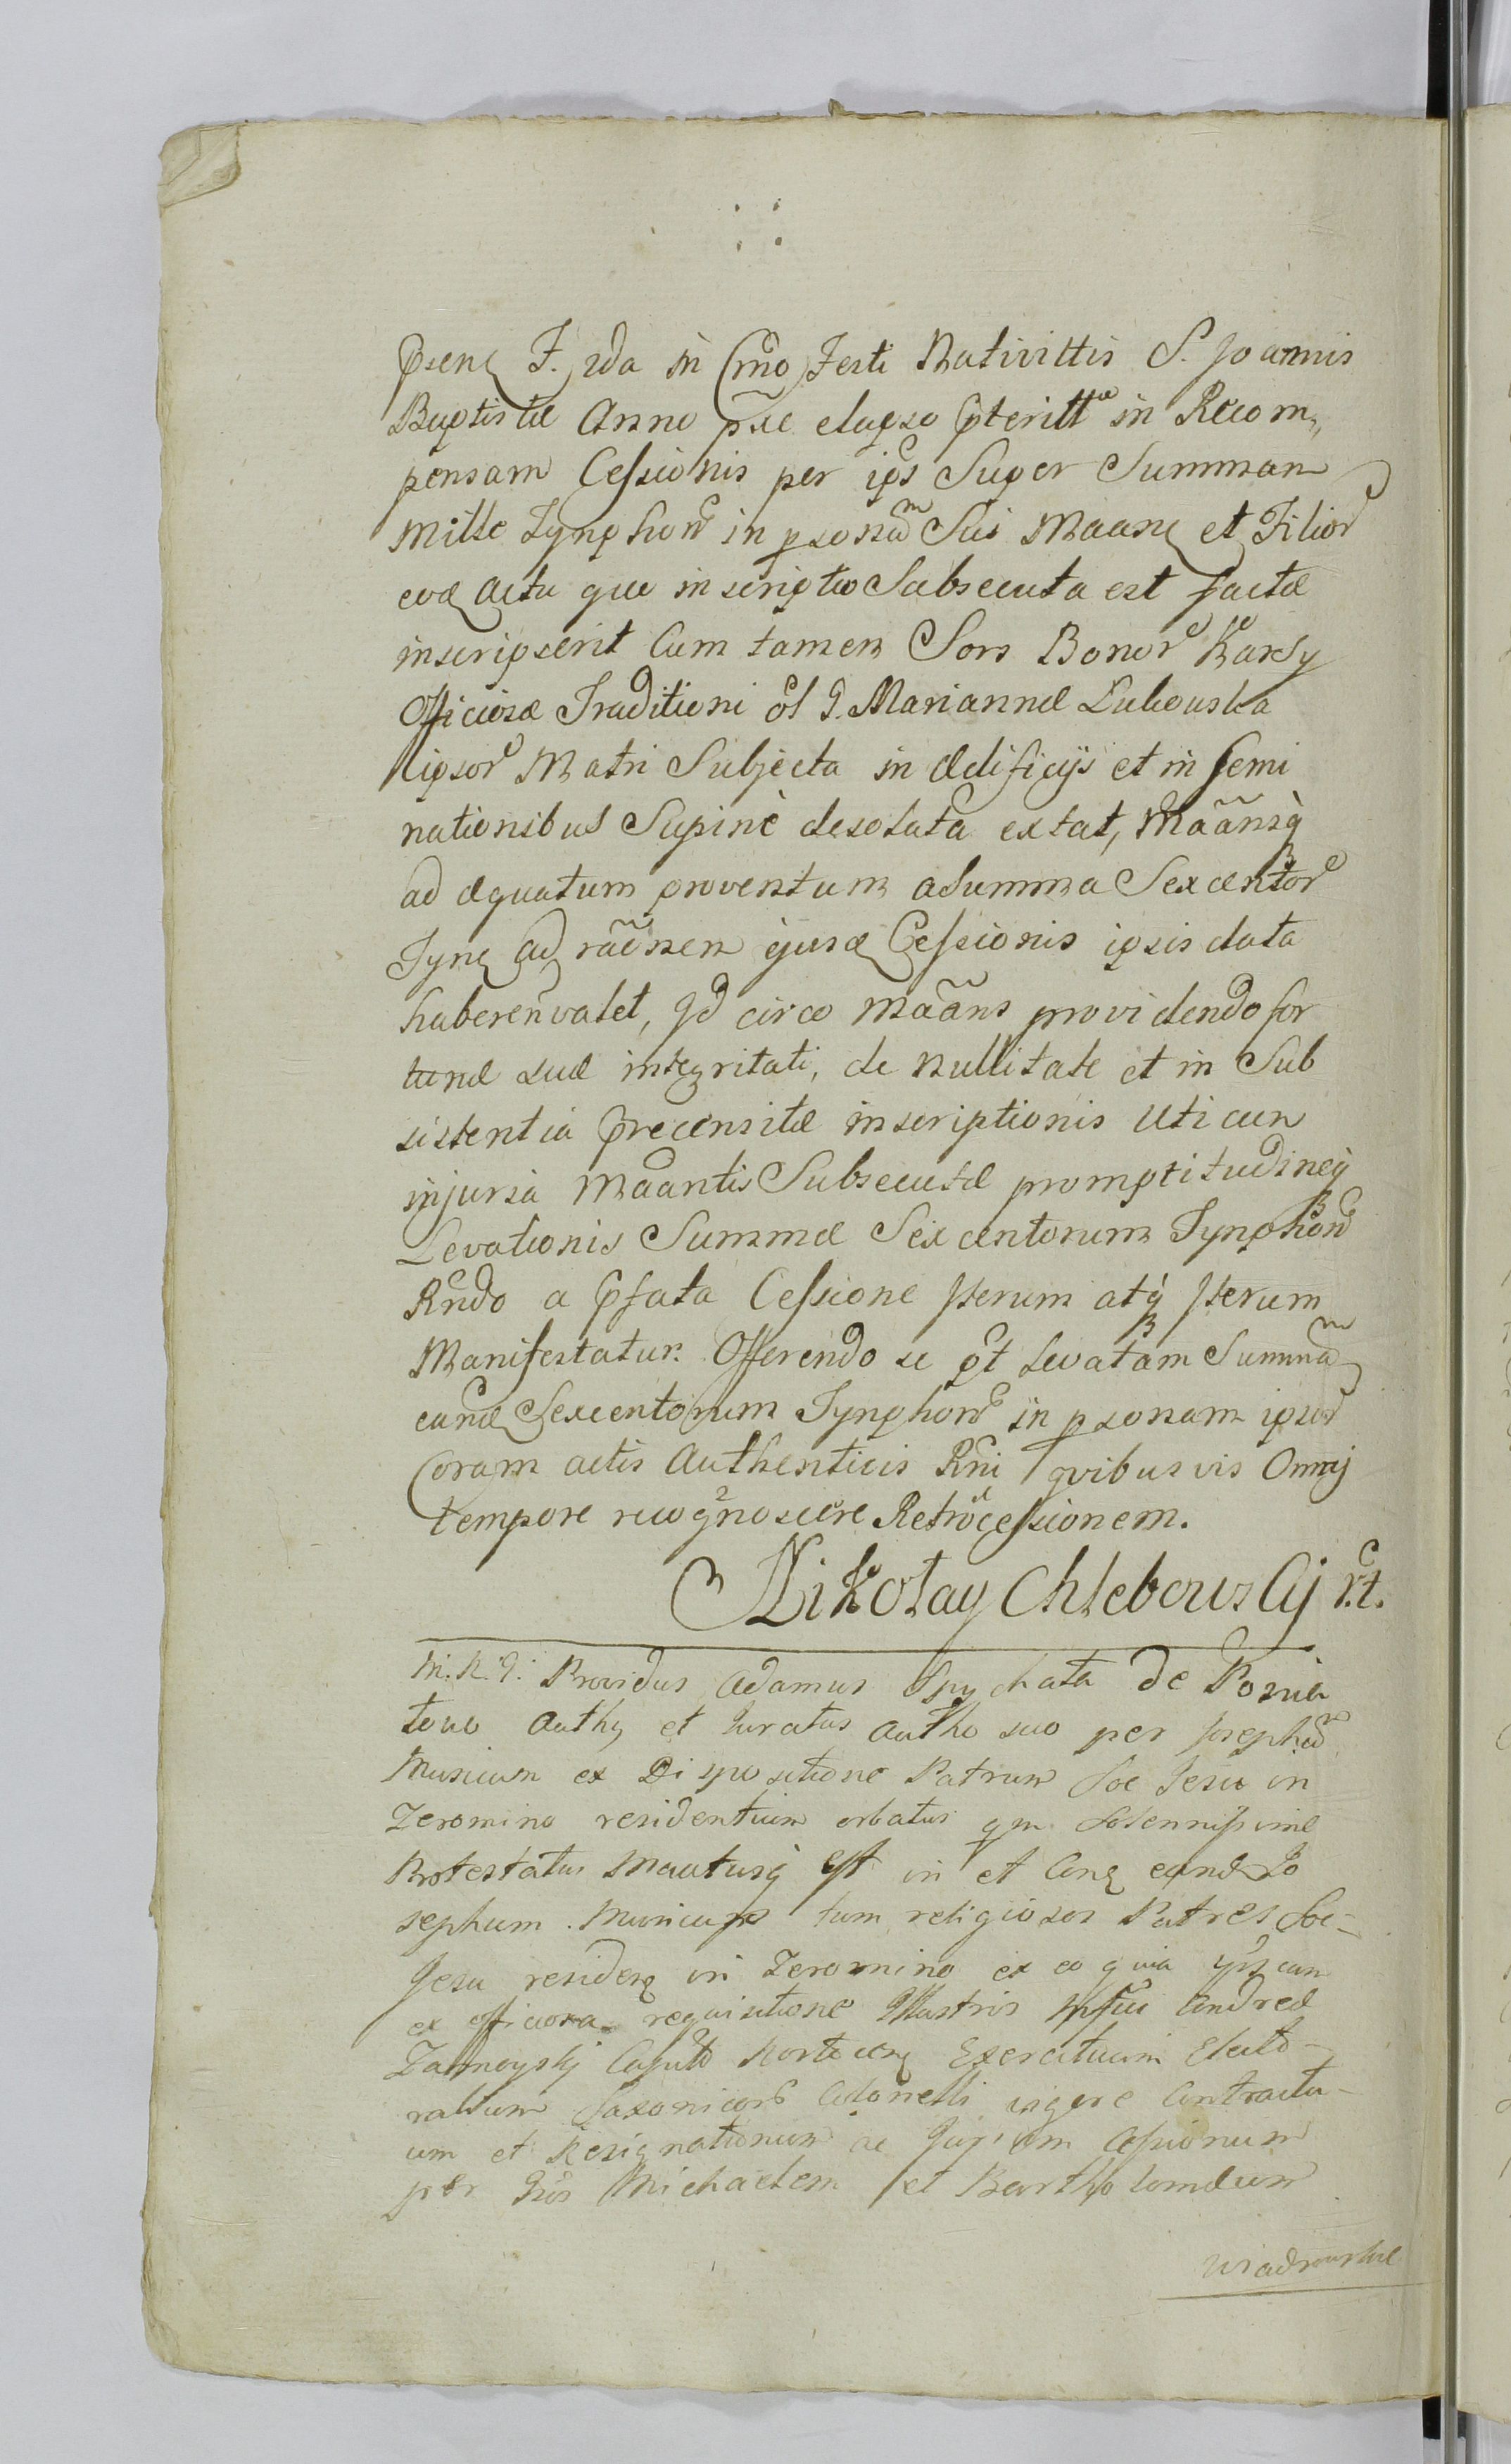 Psen F. 2da in Crno Festi Nativittis S. Joannis
Baptistæ Anno pxe elapso Pteritt in Recom„
pensam Cessionis per ips Super Summam
Mille Tynphor in psonam Sui Maan et Filior
eod actu que inscriptio Subsecuta est factæ
inscripserit Cum tamen Sors Bonor Karsy
Officiosæ Traditioni ol G. Mariannæ Lubouska
ipsor Matri Subjecta in Ædificijs et in Semi
nationibus Supinè desolata extat, Maansq
ad æquatum proventum a Summa Sexcentor
Tyn ad raonem ejusd Cessionis ipsis data
habere nvalet, Id circo Maans providendo for
tunæ suæ integritati, de nullitate et in Sub
sistentia Precensitæ inscriptionis Uti cum
injuria Maantis Subsecutæ promptitudineq
Levationis Summæ Sexcentorum Tynphor
Rndo a Pfata Cessione Iterum atq Iterum
Manifestatur. Offerendo se pt Levatam Summam
eand Sexcentorum Tynphor in psonam ipsor
Coram actis Authenticis Rni quibusvis Omnj
tempore recognoscere Retrocessionem.
Nikolay Chlebowskj rt.
M. R. J. Providus Adamus Spychała de Ponia
towo Auth et Juratus Autho suo per Josephum
Musicum ex Dispositione Patrum Soc Jesu in
Zeromino residentium orbatus qm Solennissime
Protestatus Maatusq est in et Con eund Jo
sephum Musicum tum religiosos Patres Soc
Jesu residen in Zeromino ex eo quia ips cum
ex officiosa requisitione Illustris Mfci Andreæ
Zamoyskj Exercituum Electo-
ralium Saxonicor Colonelli vigore Contractu-
um et Resignationum ac Cessionum
per Gsos Michaelem et Bartholomæum
Wiadrowskie